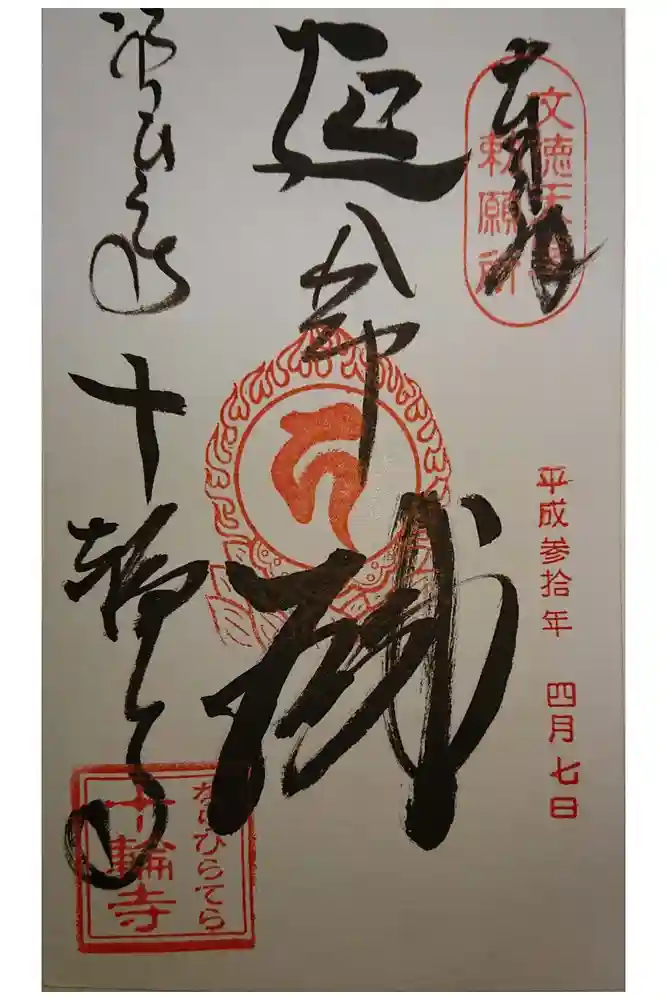 奉拝
文徳天皇
勅願所
平成参拾年 四月七日
延命
なりひら寺
十輪寺
なりひらてら
十輪寺